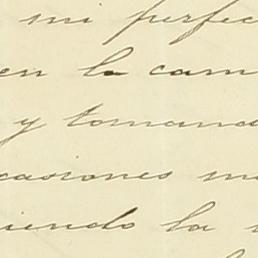 mi perfec
en la cam
y tomand
casiones m
iendo la